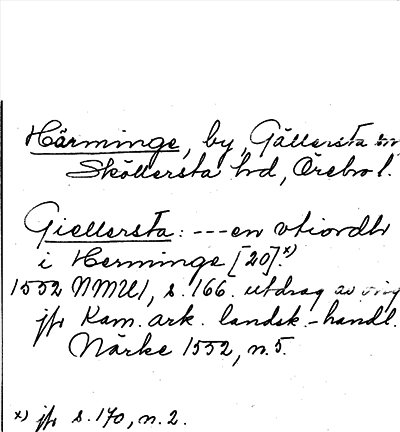 Härminge, by, Gällersta sn
Sköllersta hd, Örebro l.
Giellersta: ---en vtiordh
i Herminge [20].x)
1552 NMU1, s. 166. utdrag av orig
jfr Kam. ark. landsk.-handl.
Närke 1552, n. 5.
x) jfr s. 170, n. 2.